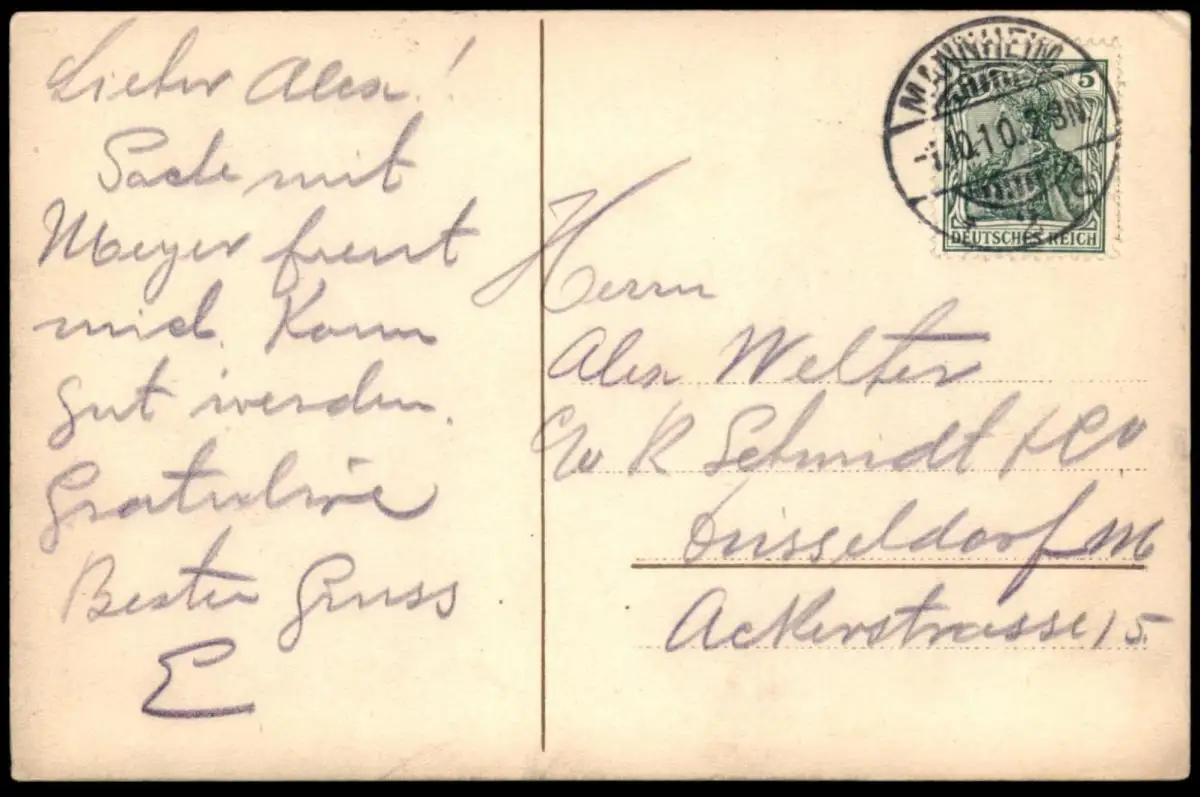 Lieber Alex!
Sache mit
Meyer freut
mich. Kann
gut werden.
Gratuliere
Bester Gruss
E
MANNHEIM
5
DEUTSCHES REICH
Herrn
Alex Welter
c/o R Schmidt & Co
Düsseldorf
Ackerstrasse 15.